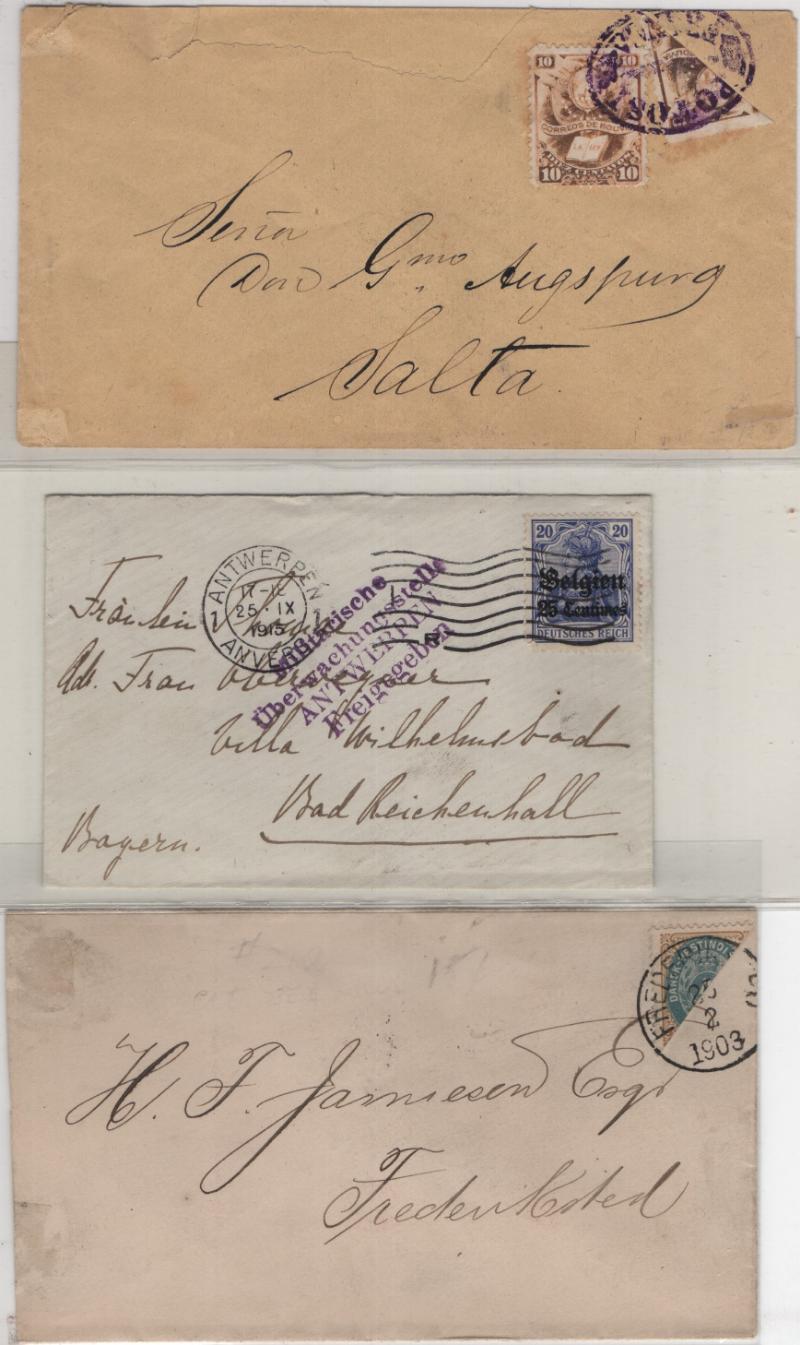 10 10
CORREOS DE BOLIVIA
LA LEY
10 10
POTOSI
Señor
Don Gmo. Augspurg
Salta.
ANTWERPEN
1 1
25 · IX
1915
ANVERS
20 20
Belgien
25 Centimes
DEUTSCHES REICH
Militärische
Überwachungsstelle
ANTWERPEN
Freigegeben
Fräulein
Adr. Frau
Villa Wilhelmsbad
Bad Reichenhall
Bayern.
DANSK VESTINDI
2
1903
H. F. Jamiesen Esqr
Frederiksted